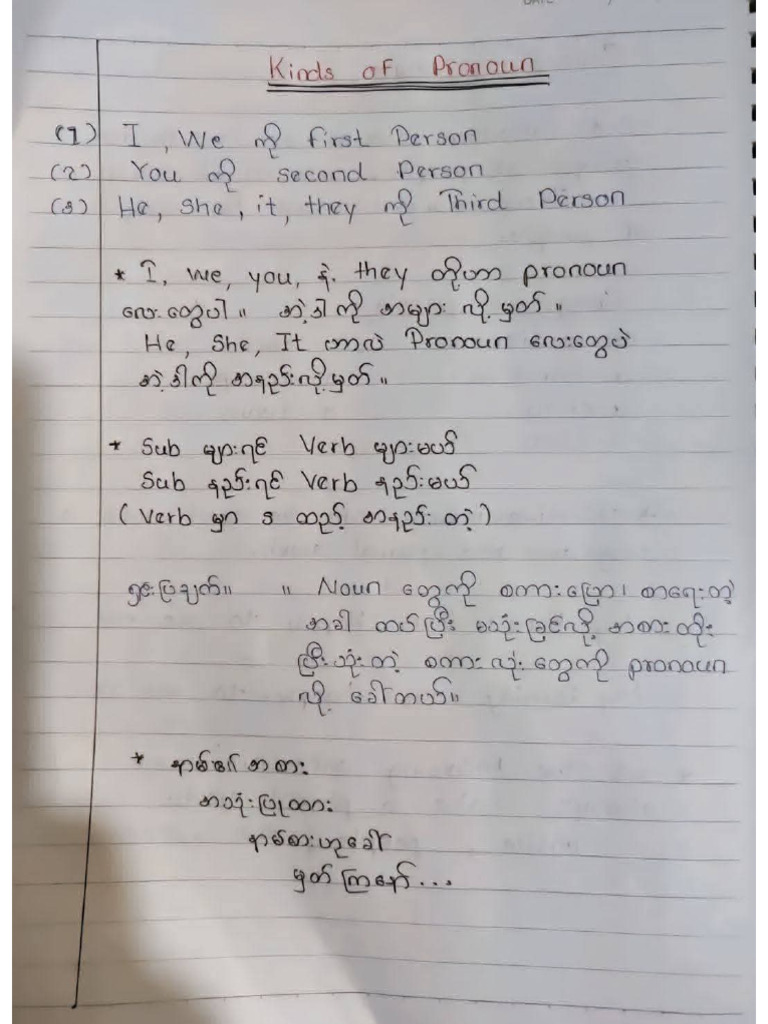 Kinds of Pronoun
(၁) I, We ကို first Person
(၂) You ကို second Person
(၃) He, she, it, they ကို Third Person
* I, we, you, နဲ့ they တို့ဟာ pronoun
လေးတွေပါ။ အဲ့ဒါကို အများ လို့မှတ်။
He, She, It ဟာလဲ Pronoun လေးတွေပဲ
အဲ့ဒါကို အနည်းလို့မှတ်။
* Sub များရင် Verb များမယ်
Sub နည်းရင် Verb နည်းမယ်
(Verb မှာ s ထည့် အနည်း တဲ့)
ရှင်းပြချက်။ ။ Noun တွေကို စကားပြော၊ စာရေးတဲ့
အခါ ထပ်ပြီး မသုံးခြင်လို့ အစားထိုး
ပြီးသုံးတဲ့ စကားလုံးတွေကို pronoun
လို့ ခေါ်တယ်။
* နာမ်၏အစား
အသုံးပြုထား
နာမ်စားဟုခေါ်
မှတ်ကြနော်...